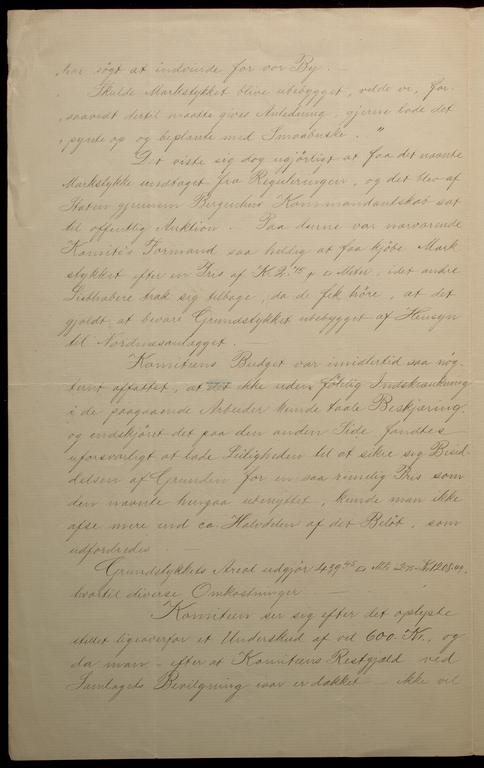 har søgt at indvinde for vor By. —
"Skulde Markstykket blive ubebygget, vilde vi, for-
"saavidt dertil maatte gives Anledning, gjerne lade det
"pynte op og beplante med Smaabuske. "
Det viste sig dog ugjørligt at faa det nævnte
Markstykke undtaget fra Reguleringen, og det blev af
Staten gjennem Bergenhus Kommandantskab sat
til offentlig Auktion. — Paa denne var nærværende
Komités Formand saa heldig at faa kjøbe Mark
stykket efter en Pris af K. 2.75 pr □ Meter, idet andre
Liebhabere trak sig tilbage, da de fik høre, at det
gjaldt at bevare Grundstykket ubebygget af Hensyn
til Nordnæsanlægget. —
Komitéens Budget var imidlertid saa nøg-
ternt affattet, at det ikke uden følelig Indskrænkning
i de paagaaende Arbeider kunde taale Beskjæring,
og endskjønt det paa den anden Side fandtes
uforsvarligt at lade Leiligheden til at sikre sig Besid-
delsen af Grunden for en saa rimelig Pris som
den nævnte hengaa ubenyttet, kunde man ikke
afse mere end ca. Halvdelen af det Beløb, som
udfordredes. —
Grundstykkets Areal udgjør 439.45 □ Mtr. = K 1208.49,
hvortil diverse Omkostninger —
Komitéen ser sig efter det oplyste
stillet ligeoverfor et Underskud af ved 600 Kr., og
da man — efter at Komitéens Restgjæld ved
Samlagets Bevilgning iaar er dækket — ikke vil